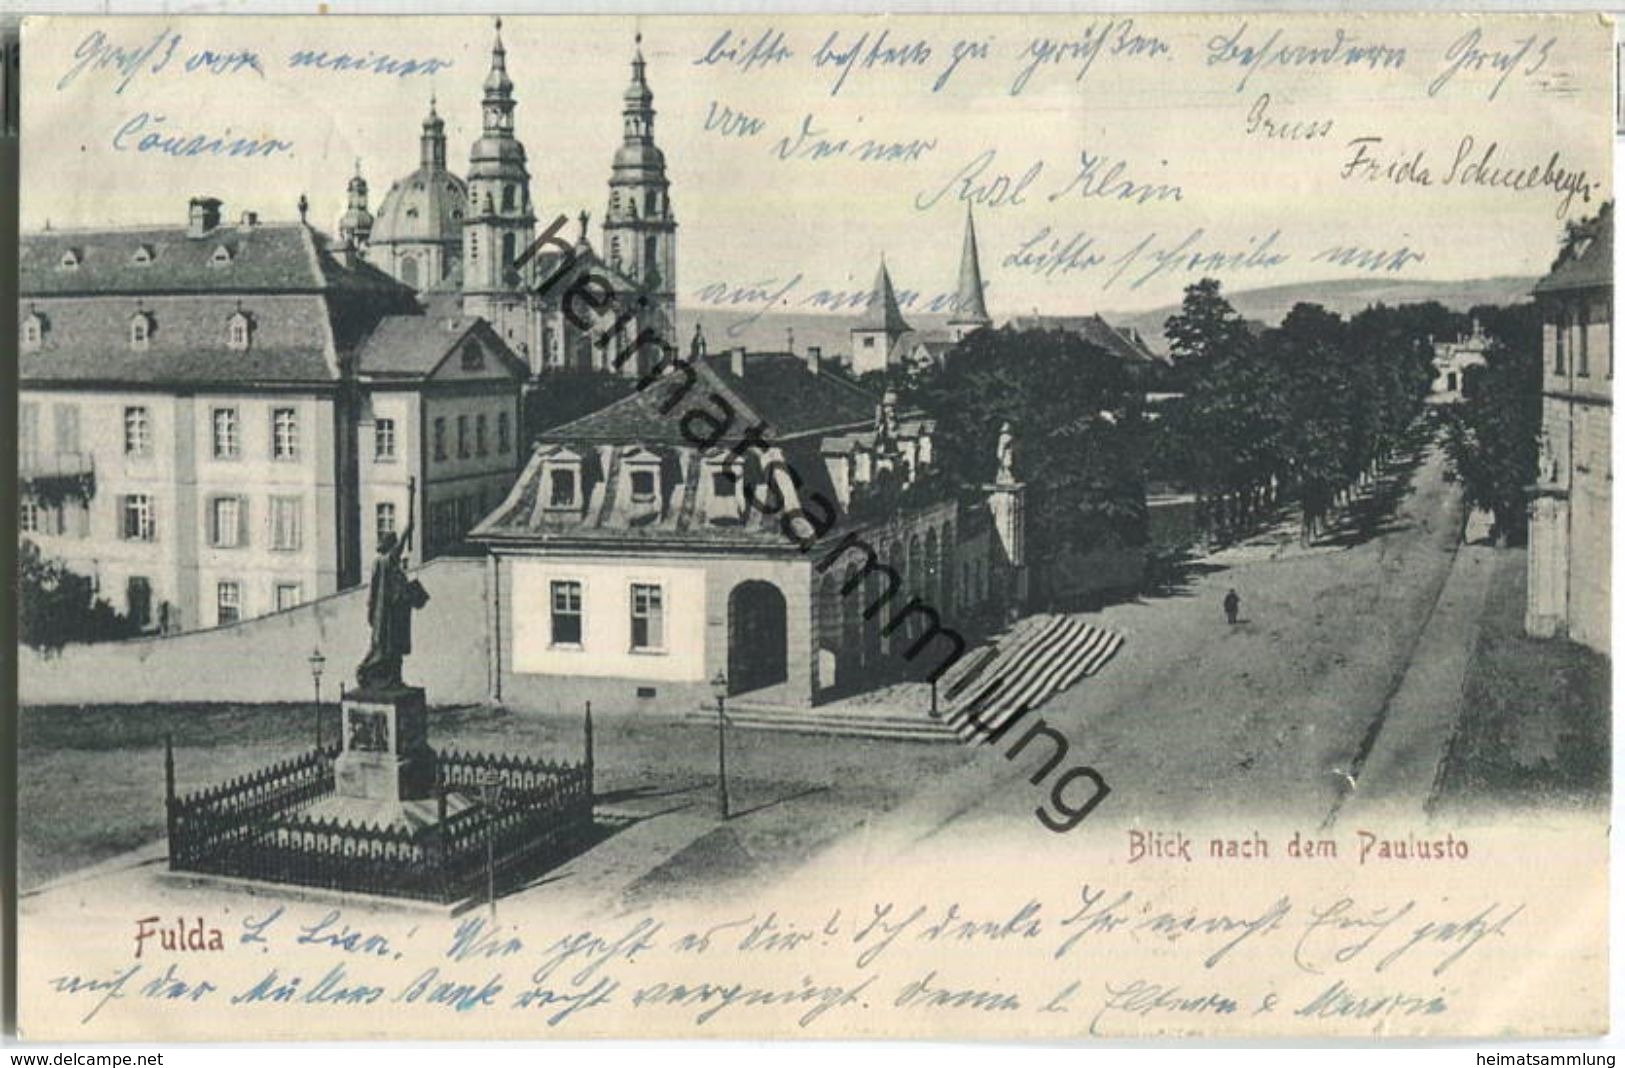 Gruß von meiner
Cousine.
bitte bestens zu grüßen. Besondern Gruß
von Deiner
Rosl Klein
Bitte schreibe mir
auch einmal
Gruss
Frida Schneeberger
heimatsammlung
Blick nach dem Paulusto
Fulda L. Lina! Wie geht es Dir? Ich denke Ihr macht Euch jetzt
auf der Müllers Bank recht vergnügt. Deine l. Eltern &
www.delcampe.net
heimatsammlung